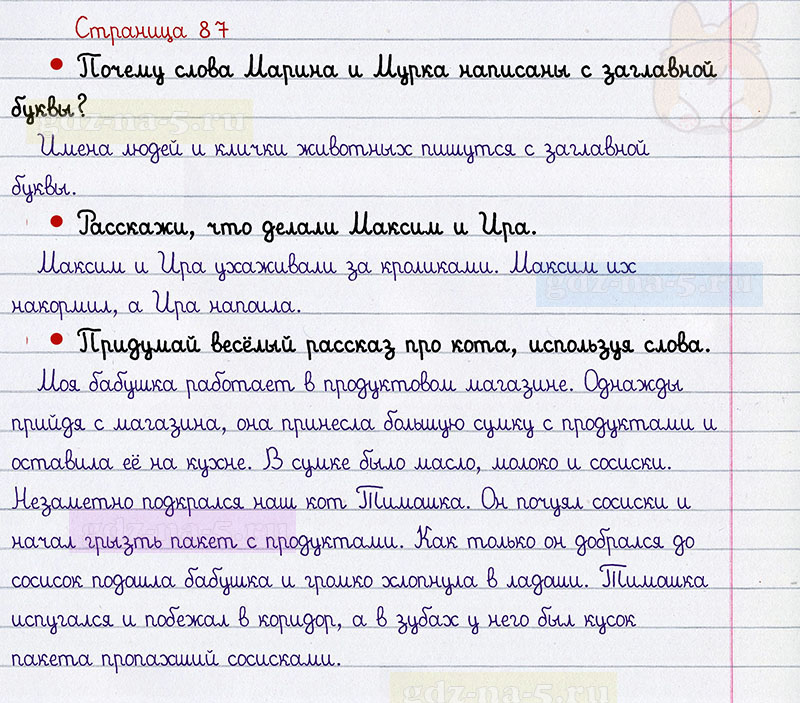 Страница 87
• Почему слова Марина и Мурка написаны с заглавной
буквы?
gdz-na-5.ru
Имена людей и клички животных пишутся с заглавной
буквы.
• Расскажи, что делали Максим и Ира.
Максим и Ира ухаживали за кроликами. Максим их
gdz-na-5.ru
накормил, а Ира напоила.
• Придумай весёлый рассказ про кота, используя слова.
Моя бабушка работает в продуктовом магазине. Однажды
прийдя с магазина, она принесла большую сумку с продуктами и
оставила её на кухне. В сумке было масло, молоко и сосиски.
Незаметно подкрался наш кот Тимашка. Он почуял сосиски и
gdz-na-5.ru
начал грызть пакет с продуктами. Как только он добрался до
сосисок подошла бабушка и громко хлопнула в ладоши. Тимашка
испугался и побежал в коридор, а в зубах у него был кусок
пакета пропахший сосисками.
gdz-na-5.ru